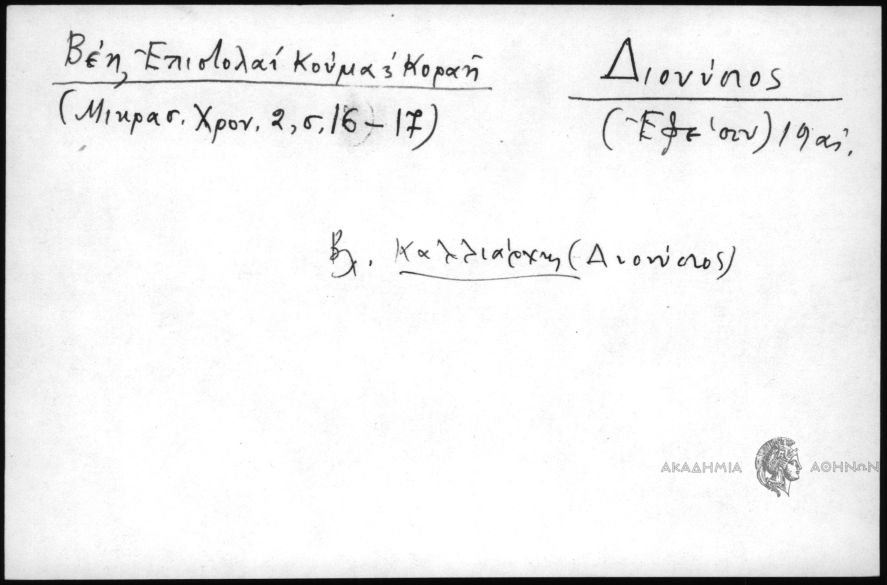 Βέη, Ἐπιστολαί Κούμα ἐ Κοραῆ
(Μικρασ. Χρον. 2, σ. 16-17)
Διονύσιος
(Ἐφέσου) 19 αἰ.
Βλ. Καλλιάρχης (Διονύσιος)
ΑΚΑΔΗΜΙΑ ΑΘΗΝΩΝ